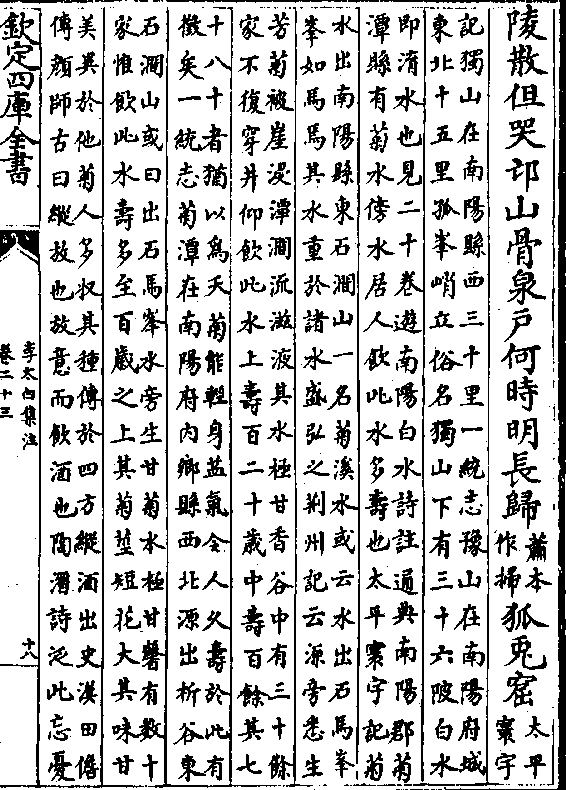 陵散但哭邙山骨泉戶何時明長歸蕭本作掃狐兔窟太平寰宇
記獨山在南陽縣西三十里一統志豫山在南陽府城
東北十五里孤峯峭立俗名獨山下有三十六陂白水
即淯水也見二十卷遊南陽白水詩註通典南陽郡菊
潭縣有菊水傍水居人飲此水多壽也太平寰宇記菊
水出南陽縣東石澗山一名菊溪水或云水出石馬峯
峯如馬焉其水重於諸水盛弘之荆州記云源旁悉生
芳菊被崖浸潭澗流滋液其水極甘香谷中有三十餘
家不復穿井仰飲此水上壽百二十歲中壽百餘其七
十八十者猶以爲夭菊能輕身益氣令人久壽於此有
徵矣一統志菊潭在南陽府内鄉縣西北源出析谷東
石澗山或曰出石馬峯水旁生甘菊水極甘馨有數十
家惟飲此水壽多至百歲之上其菊莖短花大其味甘
美異於他菊人多収其種傳於四方縱酒出史漢田儋
傳顔師古曰縱放也放意而飲酒也陶濳詩泛此忘憂
欽定四庫全書
李太白集注
卷二十三
十八